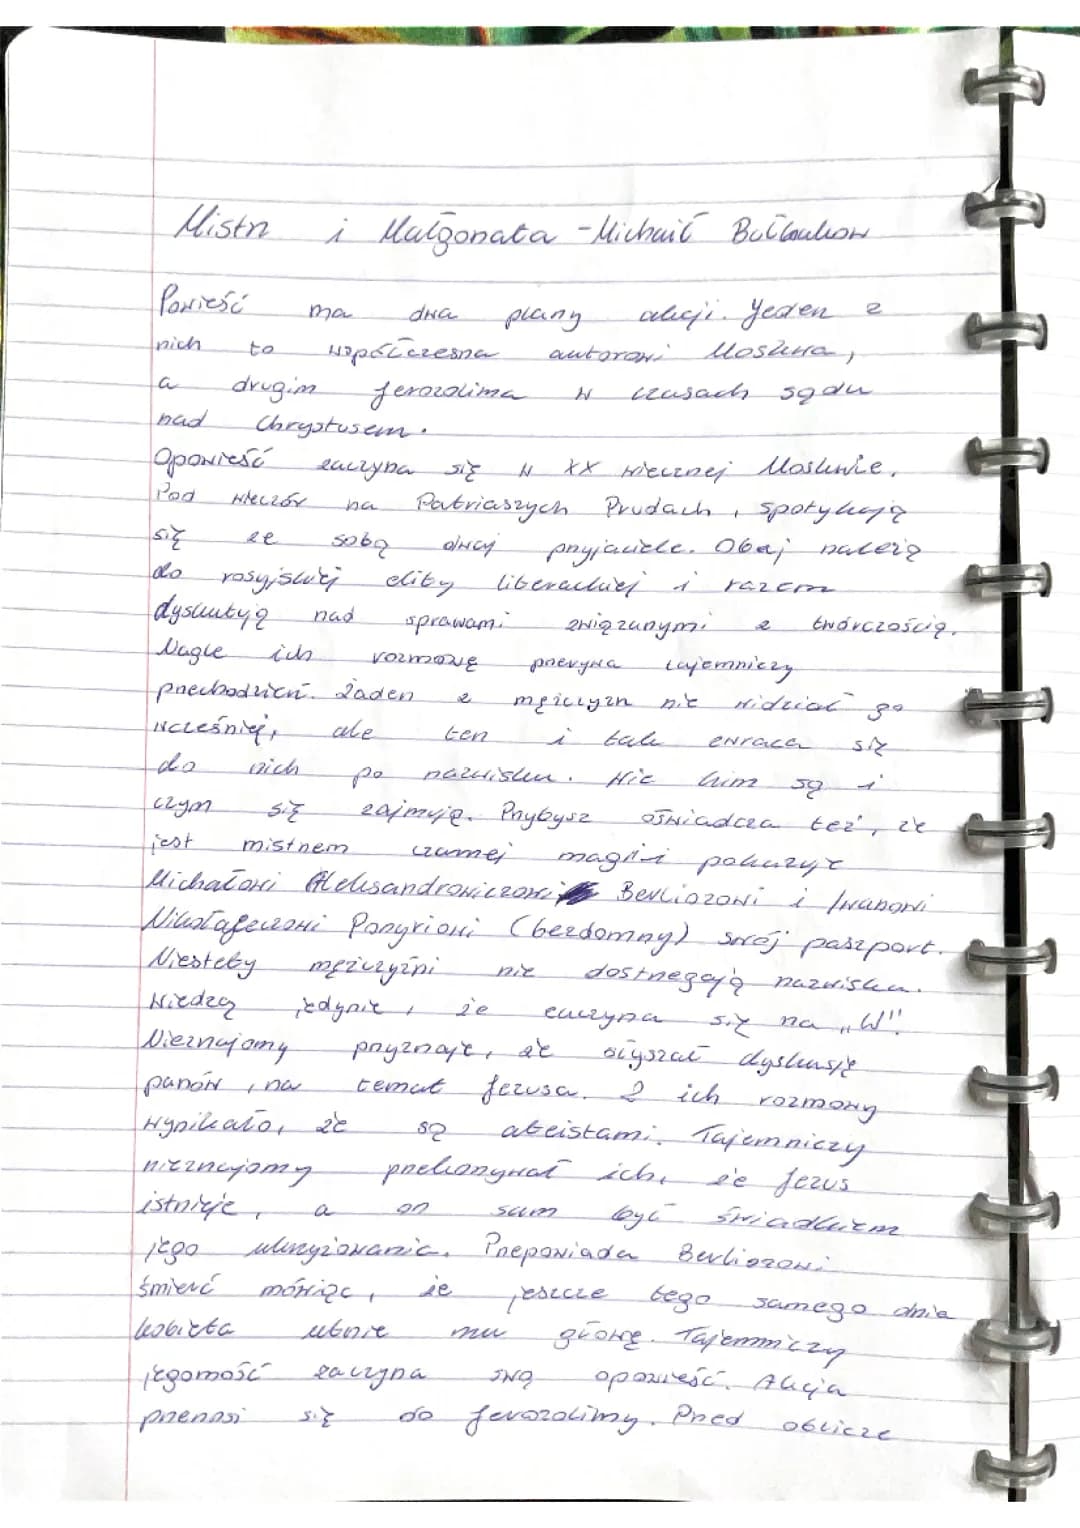 Mistrz i Małgorzata - Michaił Bułhakow
Powieść ma dwa plany akcji. Jeden z
nich to współczesna autorowi Moskwa,
a drugim Jerozolima w czasach sądu
nad Chrystusem.
Opowieść zaczyna się w XX wiecznej Moskwie.
Pod wieczór na Patriaszych Prudach, spotykają
się ze sobą dwaj przyjaciele. Obaj należą
do rosyjskiej elity literackiej i razem
dyskutują nad sprawami związanymi z twórczością.
Nagle ich rozmowę przerywa tajemniczy
przechodzień. Żaden z mężczyzn nie widział go
wcześniej, ale ten i tak zwraca się
do nich po nazwisku. Wie kim są i
czym się zajmują. Przybysz oświadcza też, że
jest mistrzem czarnej magii i pokazuje
Michałowi Aleksandrowiczowi Berliozowi i Iwanowi
Nikołajeczowi Ponyriowi (bezdomny) swój paszport.
Niestety mężczyźni nie dostrzegają nazwiska.
Wiedzą jedynie, że zaczyna się na „W"!
Nieznajomy przyznaje, że słyszał dyskusję
panów, na temat Jezusa. Z ich rozmowy
wynikało, że są ateistami. Tajemniczy
nieznajomy przekonywał ich, że Jezus
istnieje, a on sam był świadkiem
jego ukrzyżowania. Przepowiada Berliozowi
śmierć mówiąc, że jeszcze tego samego dnia
kobieta utnie mu głowę. Tajemniczy
jegomość zaczyna swą opowieść. Akcja
przenosi się do Jerozolimy. Przed oblicze